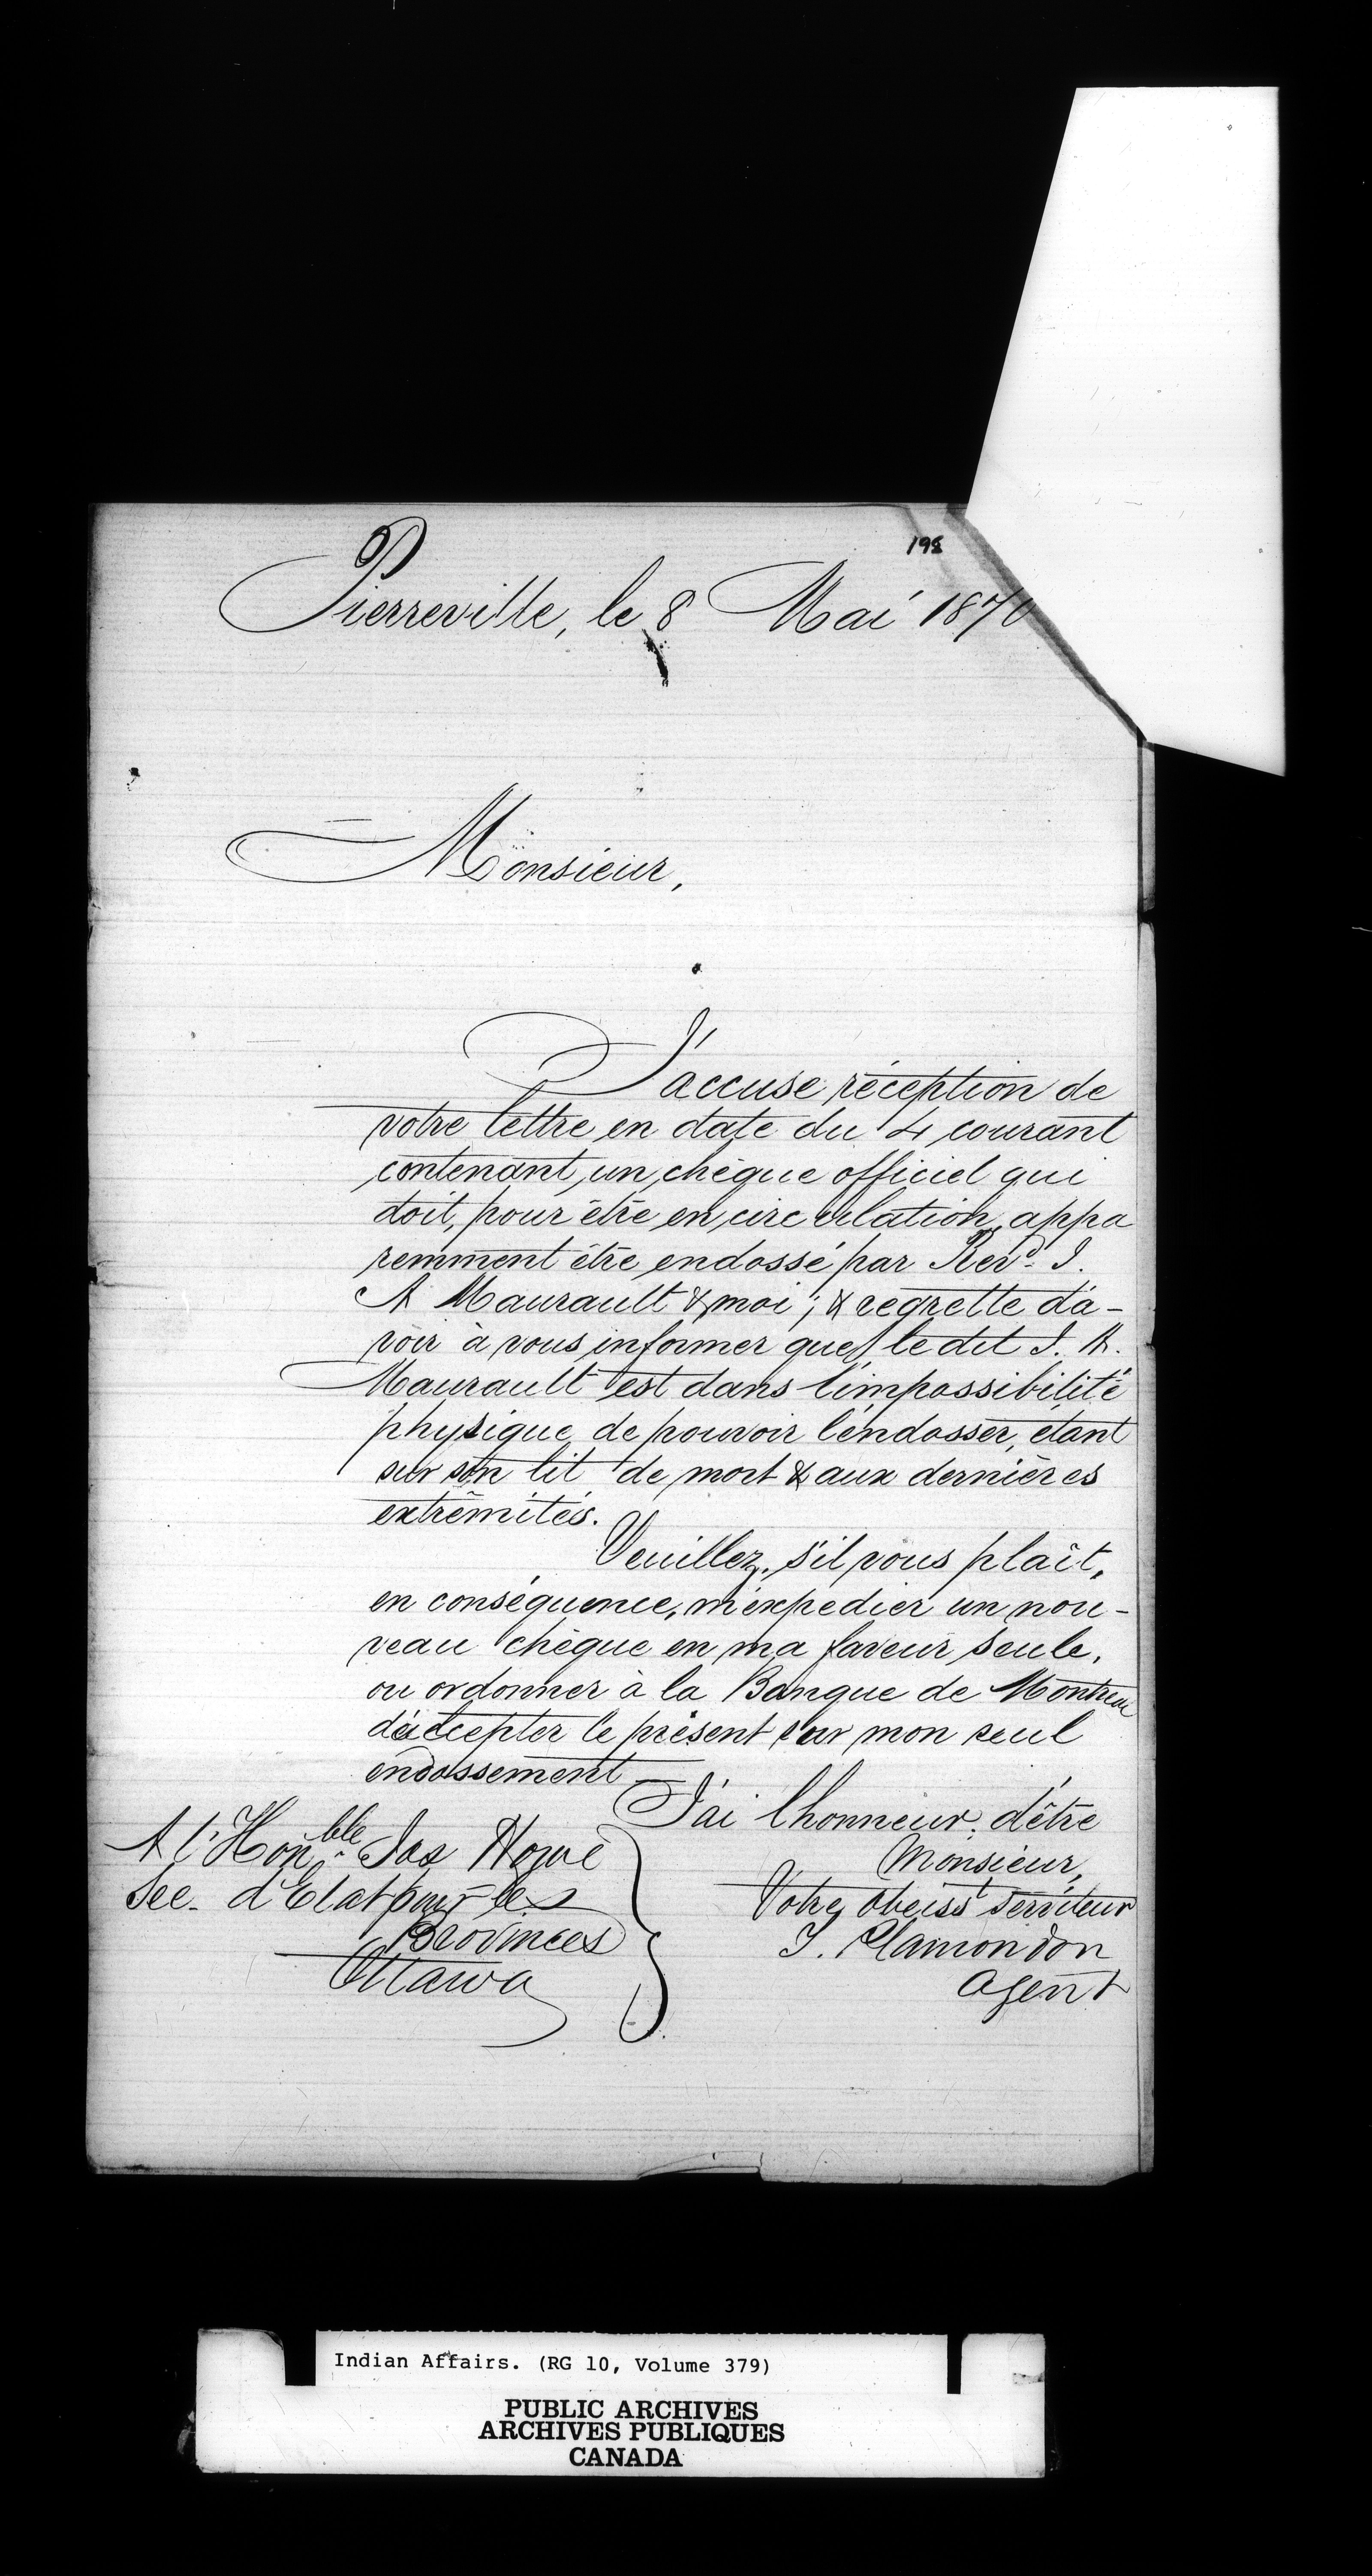 198
Pierreville, le 8 Mai 1870
Monsieur,
J'accuse réception de
votre lettre en date du 4 courant
contenant un chèque officiel qui
doit, pour être en circulation, appa
remment être endossé par Revd. J.
A Maurault & moi; & regrette d'a-
voir à vous informer que le dit J. A.
Maurault est dans l'impossibilité
physique de pouvoir l'endosser, étant
sur son lit de mort & aux dernières
extrêmités.
Veuillez, s'il vous plaît,
en conséquence, m'expedier un nou-
veau chèque en ma faveur seule,
ou ordonner à la Banque de Montreal
d'accepter le présent sur mon seul
endossement
J'ai l'honneur d'être
Monsieur,
Votre obeisst serviteur
J. Plamondon
Agent
A l'Honble Jos Howe
Sec. d'Etat pour les
Provinces
Ottawa
Indian Affairs. (RG 10, Volume 379)
PUBLIC ARCHIVES
ARCHIVES PUBLIQUES
CANADA